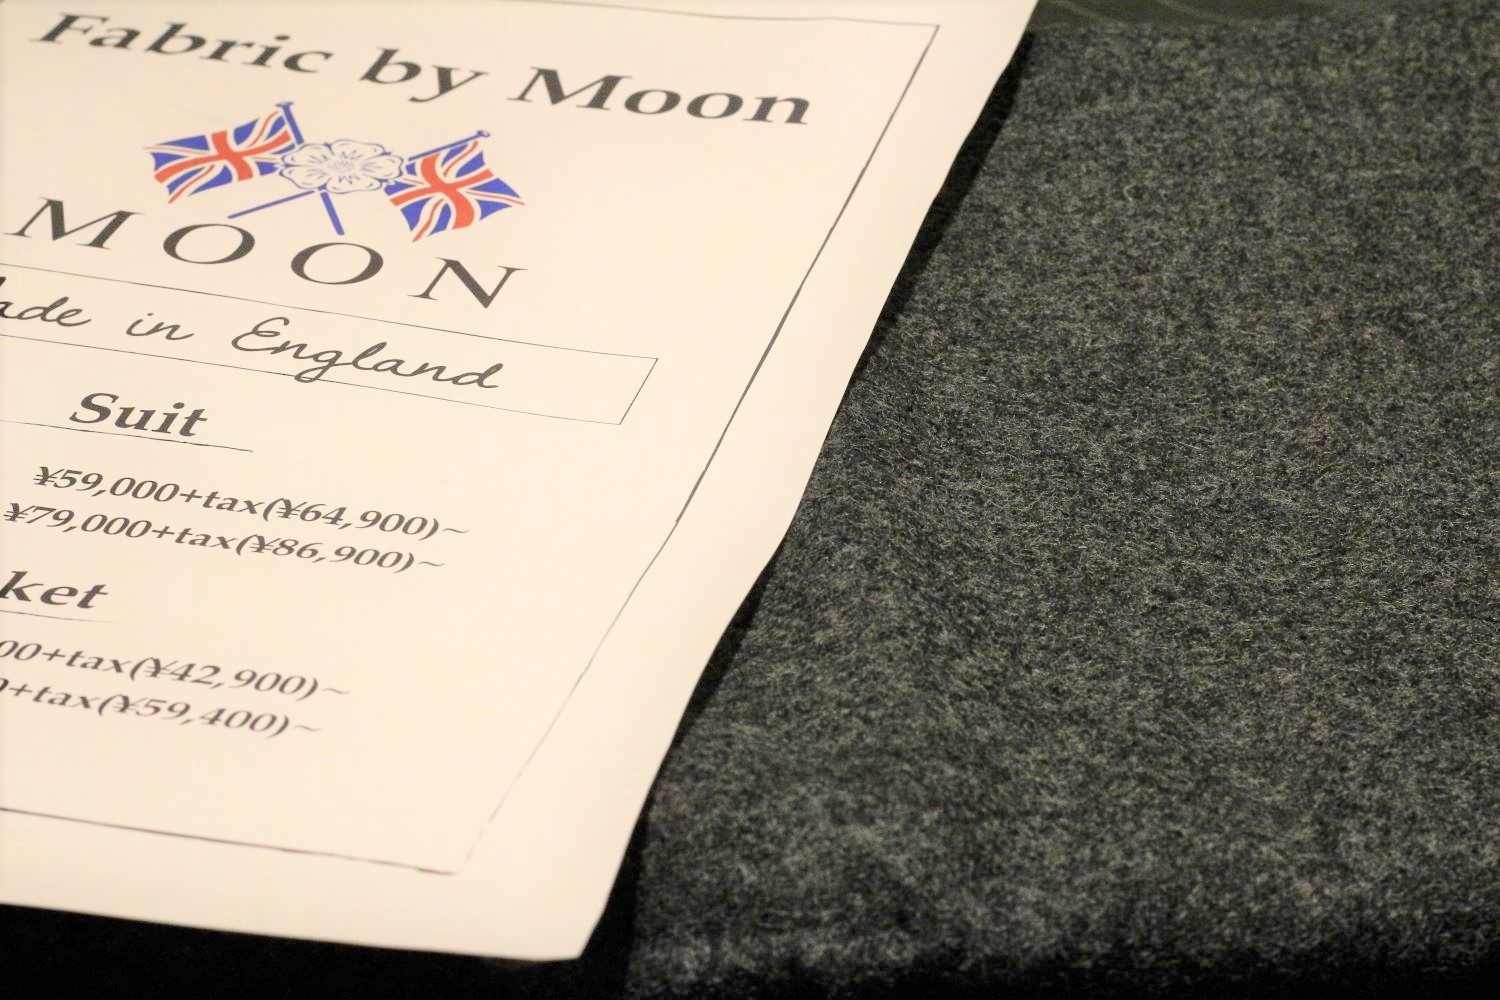 Fabric by Moon
MOON
in England
Suit
¥59,000+tax(¥64,900)~
¥79,000+tax(¥86,900)~
ket
00+tax(¥42,900)~
+tax(¥59,400)~